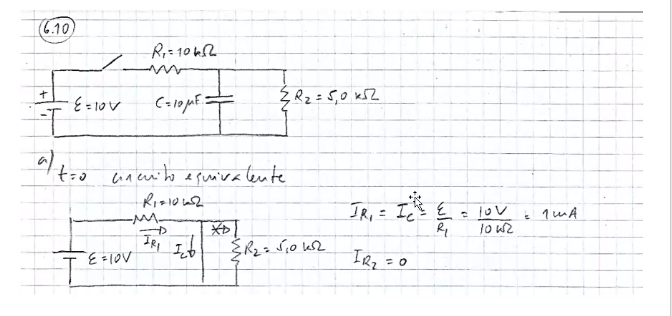 6.10
R₁ = 10 kΩ
+
-
ε = 10 V
C = 10 μF
R₂ = 5,0 kΩ
a) t=0 circuito equivalente
R₁ = 10 kΩ
I_R₁
I_C
ε = 10V
R₂ = 5,0 kΩ
I_R₁ = I_C = ε/R₁ = 10V/10 kΩ = 1 mA
I_R₂ = 0